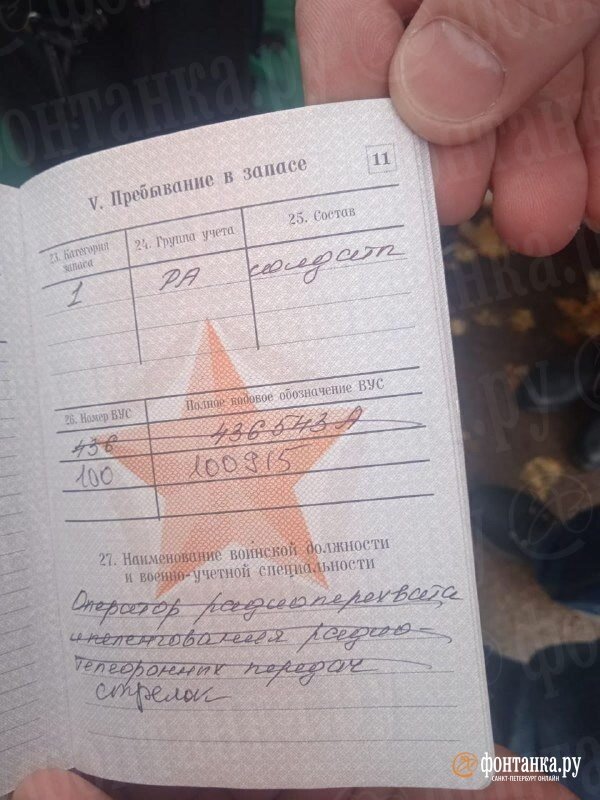 V. Пребывание в запасе
11
23. Категория запаса
24. Группа учета
25. Состав
1
РА
солдат
26. Номер ВУС
Полное кодовое обозначение ВУС
436
436543А
100
100915
27. Наименование воинской должности
и военно-учетной специальности
Оператор радиоперехвата
и пеленгования радио-
телефонных передач
стрелок
фонтанка.ру
САНКТ-ПЕТЕРБУРГ ОНЛАЙН